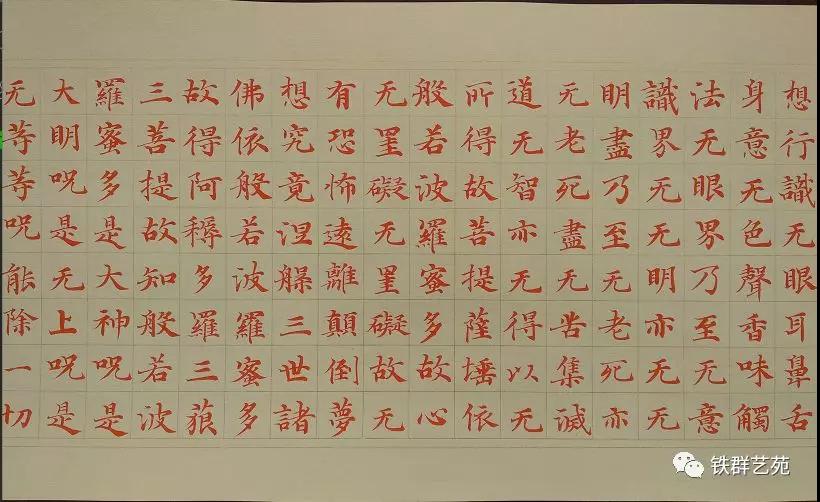 想行識无眼耳鼻舌
身意无色聲香味觸
法无眼界乃至无意
識界无无明亦无无
明盡乃至无老死亦
无老死盡无苦集滅
道无智亦无得以无
所得故菩提薩埵依
般若波羅蜜多故心
无罣礙无罣礙故无
有恐怖遠離顛倒夢
想究竟涅槃三世諸
佛依般若波羅蜜多
故得阿耨多羅三藐
三菩提故知般若波
羅蜜多是大神呪是
大明呪是无上呪是
无等等呪能除一切
铁群艺苑